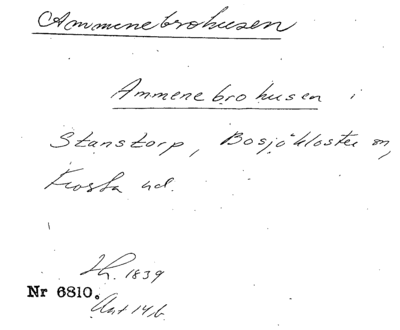 Ammenebrohusen
Ammenebrohusen i
Stanstorp, Bosjökloster sn,
Frosta hd.
Lh. 1839
Nr 6810.
Akt 14 b